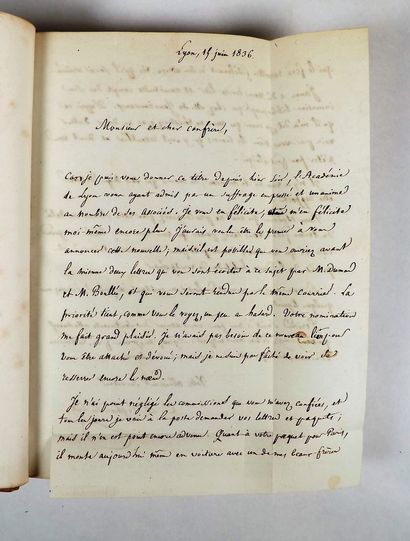 Lyon, 15 juin 1836.
Monsieur et cher confrère,
Car je puis vous donner ce titre depuis hier soir, l'Académie
de Lyon vous ayant admis par un suffrage empressé et unanime
au nombre de ses associés. Je vous en félicite, m'en félicite
moi même encore plus. J'aurais voulu être le premier à vous
annoncer cette nouvelle; mais il est possible que vous auriez avant
la mienne deux lettres qui vous sont écrites à ce sujet par M. Dumas
et M. Boullée, et qui vous seront rendues par le même courrier. La
priorité tient, comme vous le voyez, un peu au hasard. Votre nomination
me fait grand plaisir. Je n'avais pas besoin de ce nouveau lien pour
vous être attaché et dévoué; mais je ne suis pas fâché de voir
resserrer encore le nœud.
Je n'ai point négligé les commissions que vous m'avez confiées, et
tous les jours je vais à la poste demander vos lettres et paquets;
mais il n'en est point encore advenu. Quant à votre paquet pour Paris,
il monte aujourd'hui même en voiture avec un de mes beaux frères